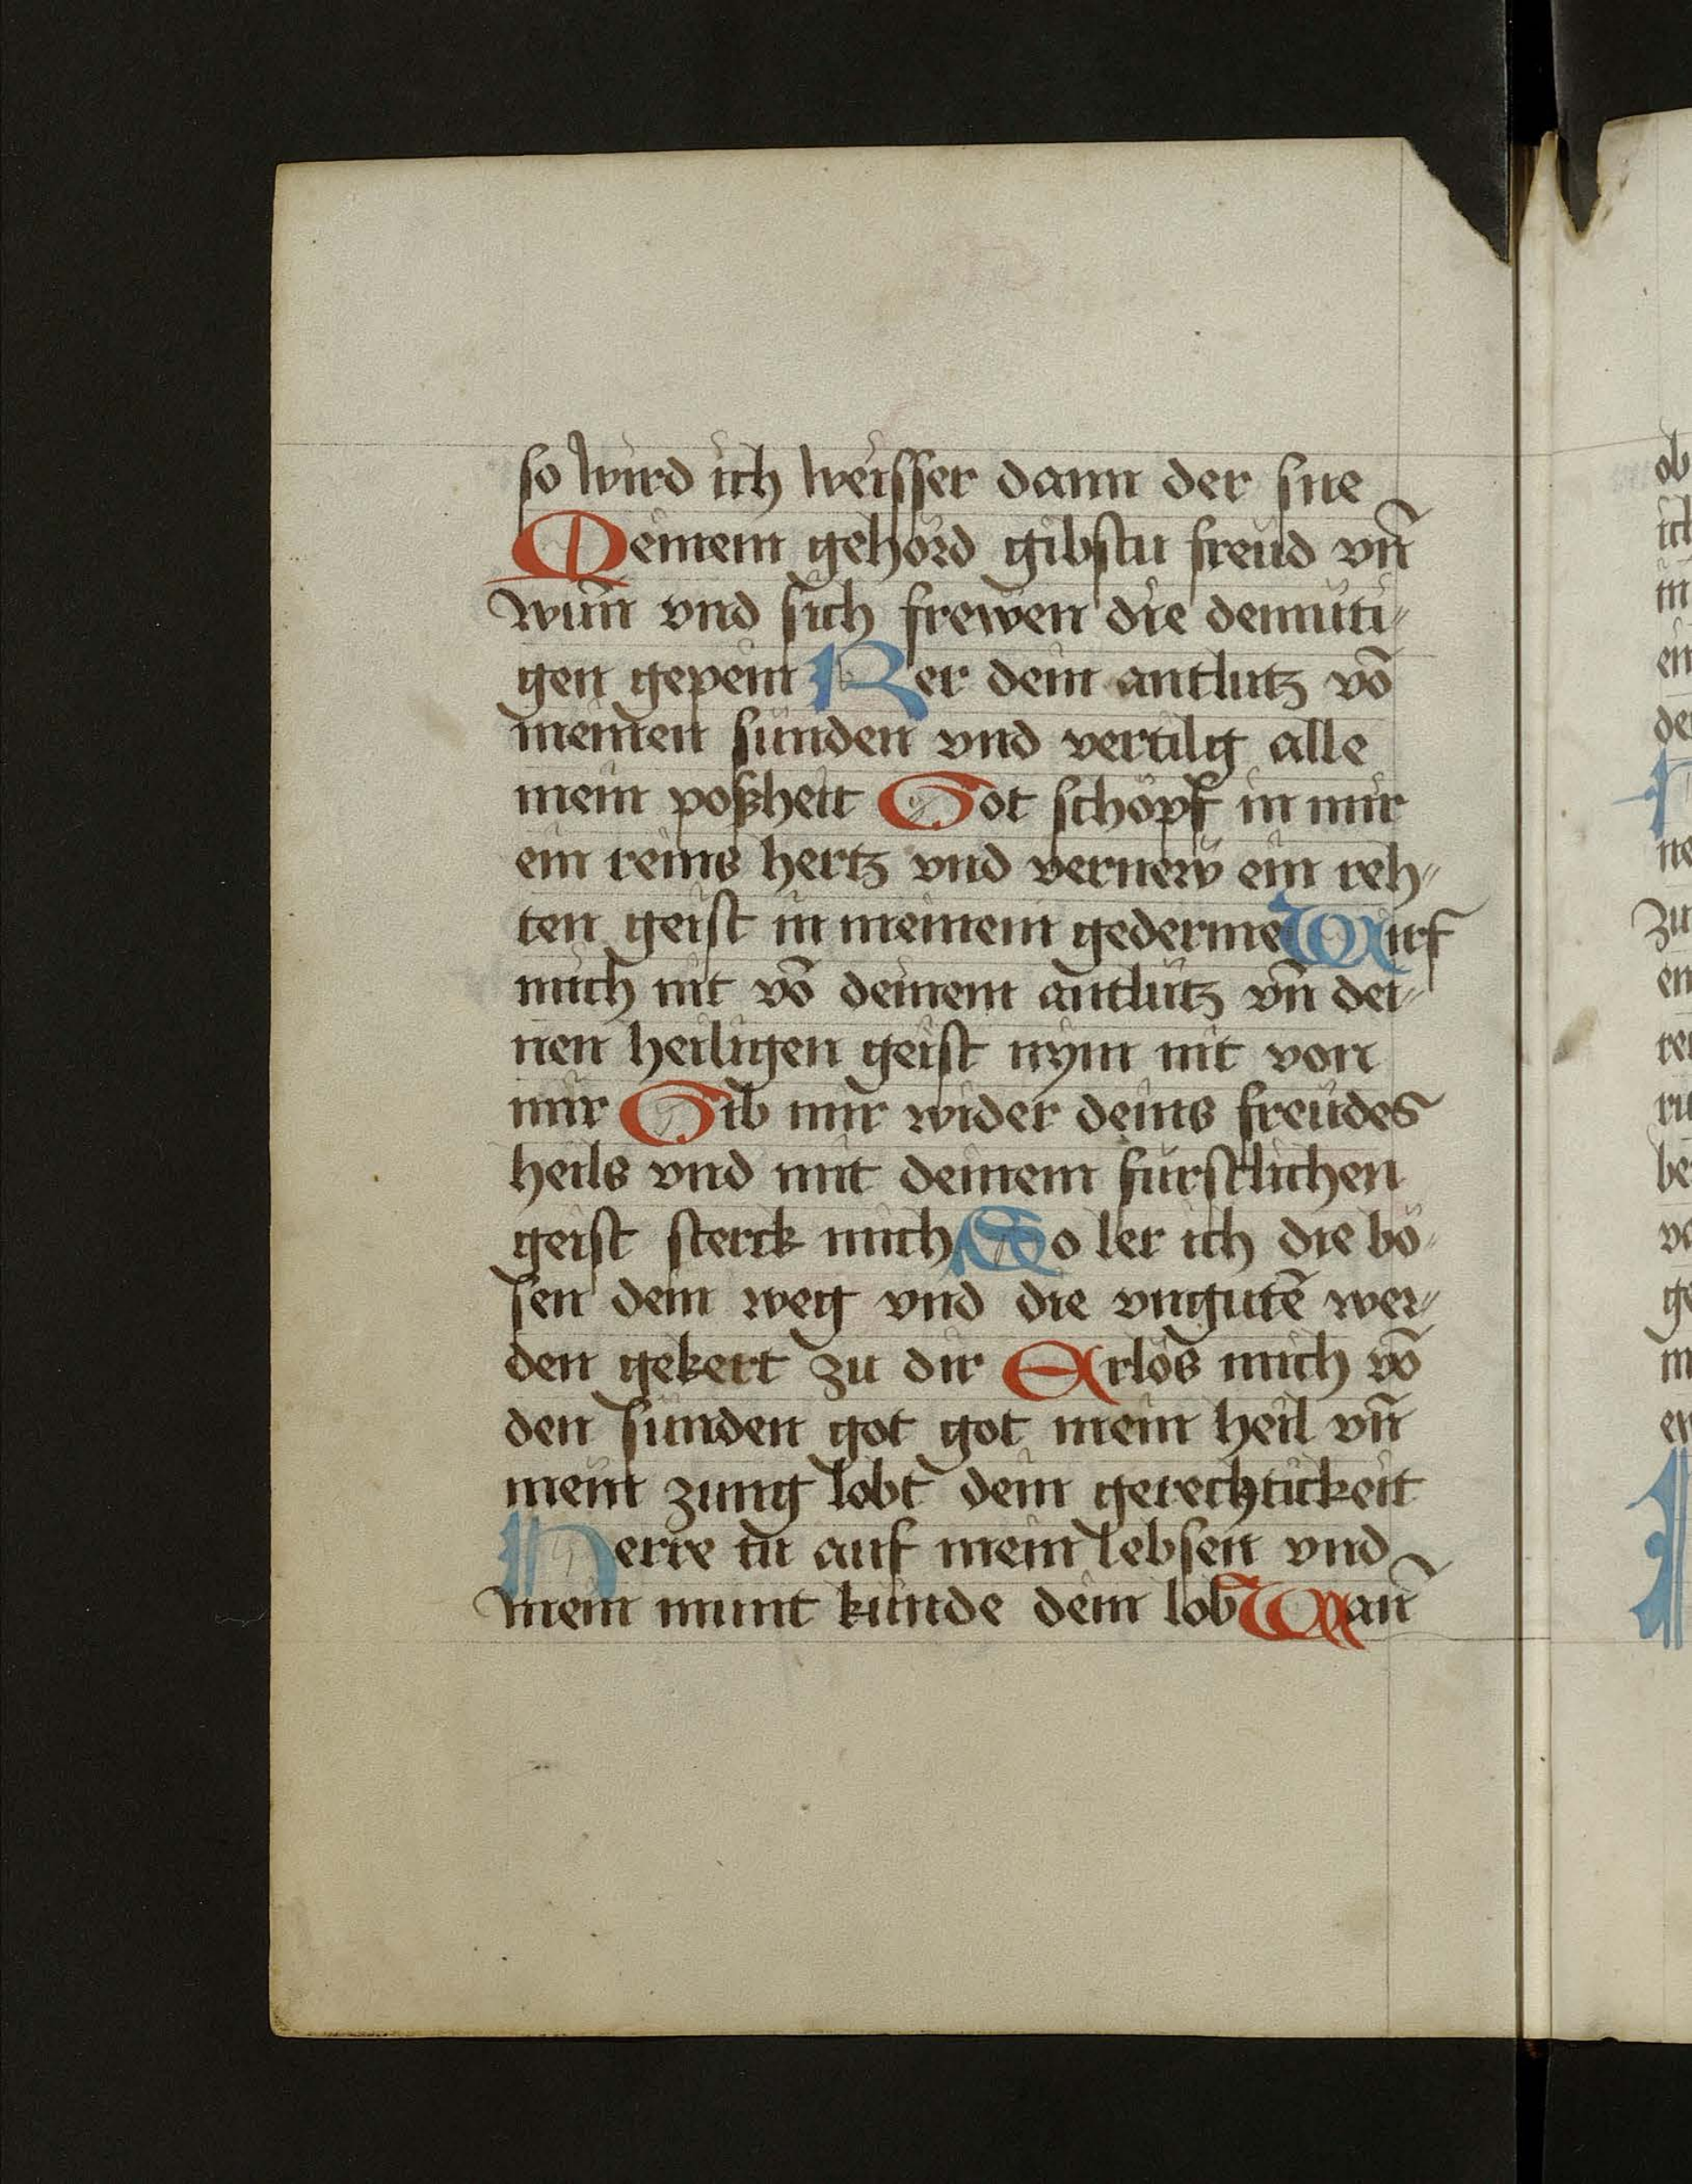 so wird ich weisser dann der sne
Meinem gehörd gibstu freüd vn̄
wun̄ vnd sich frewen die demüti„
gen gepein Ker dein antlutz vō
meinen sünden vnd vertilg alle
mein poßheit Got schöpf in mir
ein reins hertz vnd vernew ein reh„
ten geist in meinem gederme Wirf
mich nit vō deinem antlütz vn̄ dei„
nen heiligen geist nym nit von
mir Gib mir wider deins freüdes
heils vnd mit deinem fürstlichen
geist sterck mich So ler ich die bö„
sen dein weg vnd die vngutē wer„
den gekert zu dir Erlös mich vō
den sünden got got mein heil vn̄
mein zung lobt dein gerechtickeit
Herre tü auf mein lebsen vnd
mein munt künde dein lob Wan̄
ob
ich